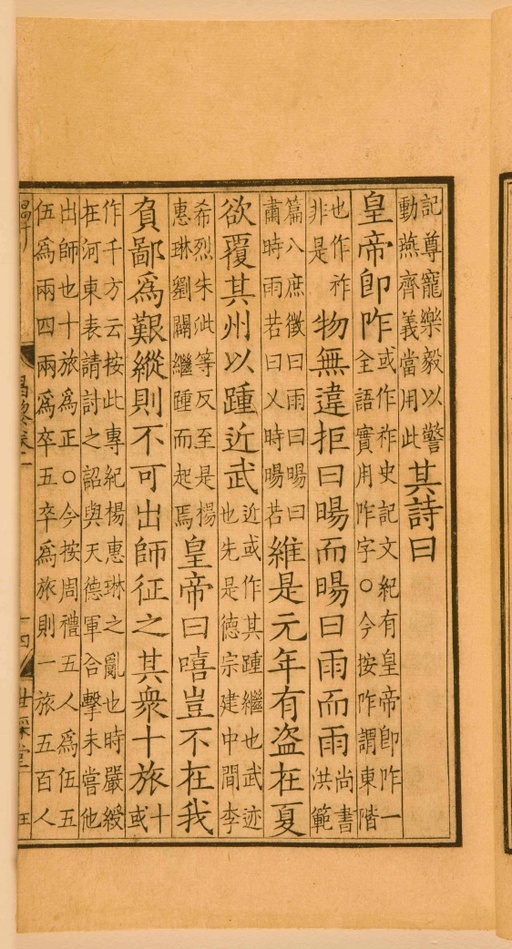 記尊寵樂毅以警動燕齊義當用此其詩曰
皇帝卽阼或作祚史記文紀有皇帝卽阼一全語實用阼字○今按阼謂東階
也作祚非是物無違拒曰暘而暘曰雨而雨尚書洪範
篇八庶徵曰雨曰暘曰肅時雨若曰乂時暘若維是元年有盗在夏
欲覆其州以踵近武近或作其踵繼也武迹也先是德宗建中間李
希烈朱泚等反至是楊惠琳劉闢繼踵而起焉皇帝曰嘻豈不在我
負鄙爲艱縱則不可出師征之其衆十旅十或
作千方云按此專紀楊惠琳之亂也時嚴綬在河東表請討之詔與天德軍合擊未嘗他
出師也十旅爲正○今按周禮五人爲伍五伍爲兩四兩爲卒五卒爲旅則一旅五百人